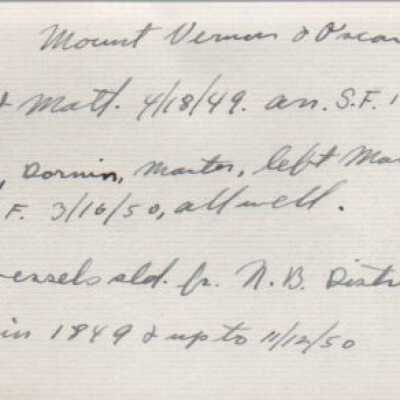 Mount Vernon & Oscar
& Matt. 4/18/49. arr. S.F. 1
, Dornin, Master, left Mat
F. 3/16/50, all well.
vessels sld. fr. N.B. Distr
in 1849 & up to 11/12/50